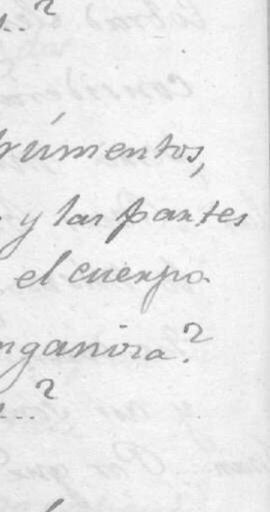 ..?
rúmentos,
y las partes
el cuerpo
nganiza?
...?